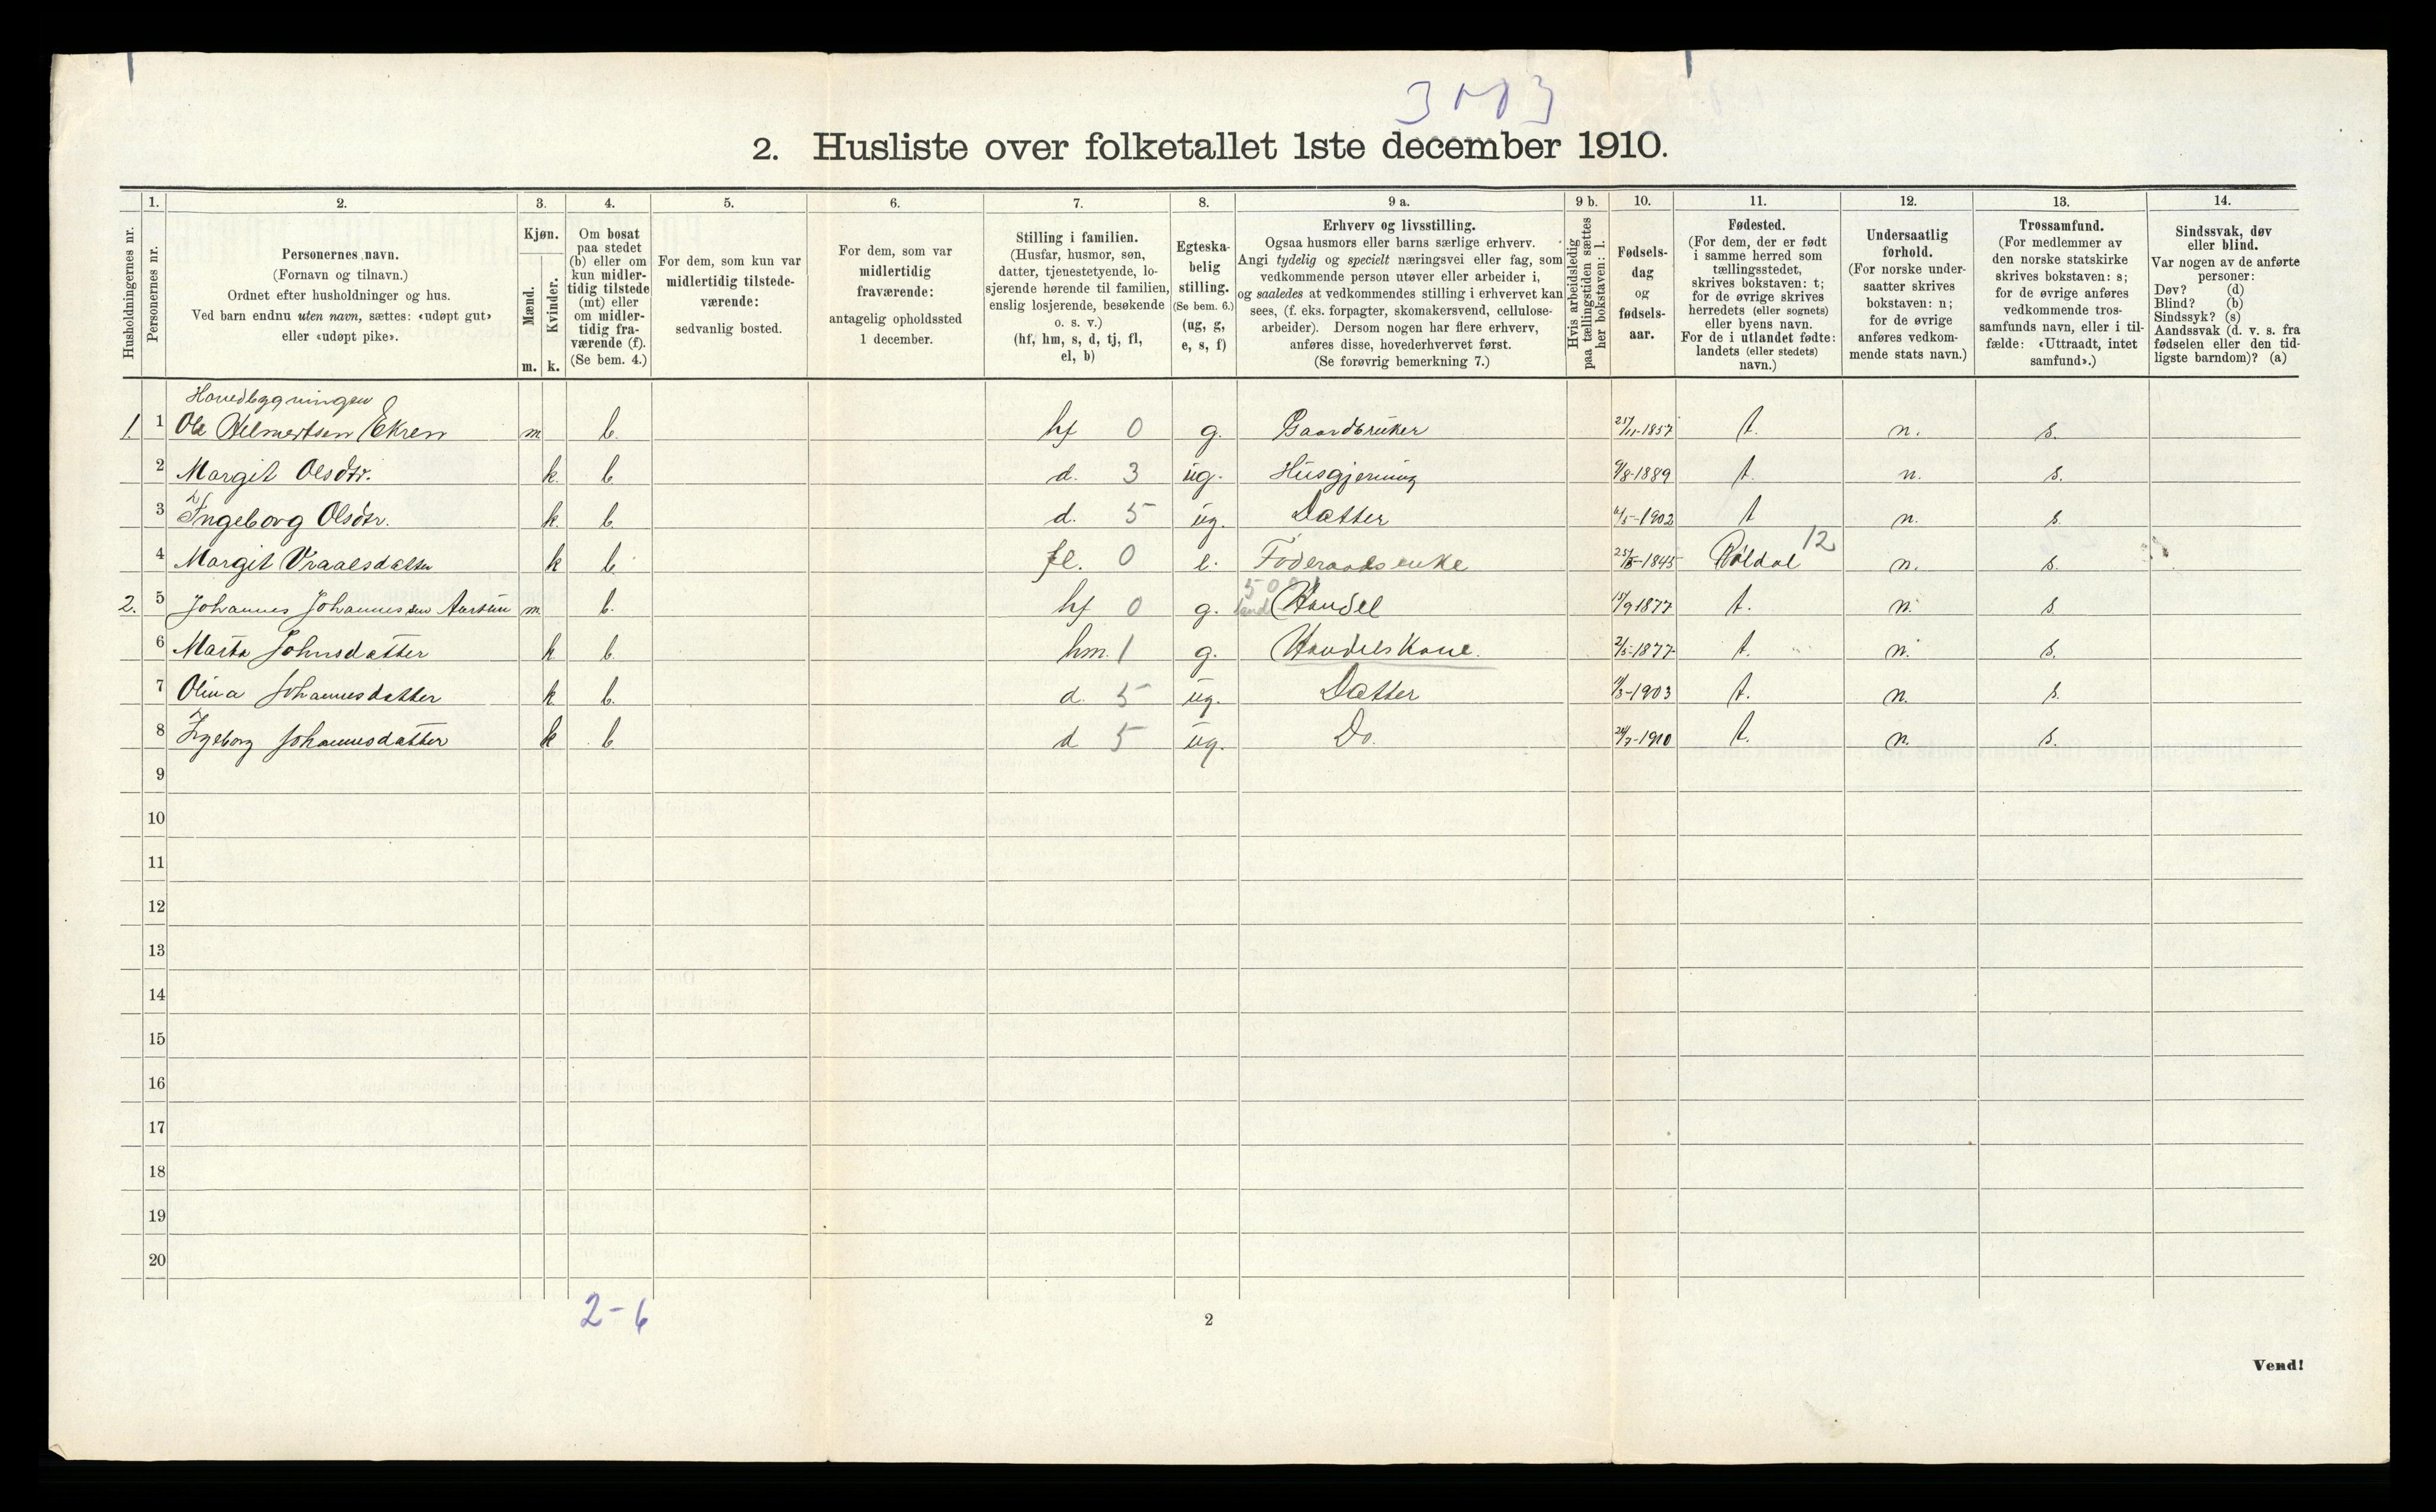 2. Husliste over folketallet 1ste december 1910.
Husholdningernes nr.
1. Personernes nr.
2. Personernes navn.
(Fornavn og tilnavn.)
Ordnet efter husholdninger og hus.
Ved barn endnu uten navn, sættes: «udøpt gut»
eller «udøpt pike».
3. Kjøn.
Mænd. m.
Kvinder. k.
4. Om bosat
paa stedet
(b) eller om
kun midler-
tidig tilstede
(mt) eller
om midler-
tidig fra-
værende (f).
(Se bem. 4.)
5. For dem, som kun var
midlertidig tilstede-
værende:
sedvanlig bosted.
6. For dem, som var
midlertidig
fraværende:
antagelig opholdssted
1 december.
7. Stilling i familien.
(Husfar, husmor, søn,
datter, tjenestetyende, lo-
sjerende hørende til familien,
enslig losjerende, besøkende
o. s. v.)
(hf, hm, s, d, tj, fl,
el, b)
8. Egteska-
belig
stilling.
(Se bem. 6.)
(ug, g,
e, s, f)
9 a. Erhverv og livsstilling.
Ogsaa husmors eller barns særlige erhverv.
Angi tydelig og specielt næringsvei eller fag, som
vedkommende person utøver eller arbeider i,
og saaledes at vedkommendes stilling i erhvervet kan
sees, (f. eks. forpagter, skomakersvend, cellulose-
arbeider). Dersom nogen har flere erhverv,
anføres disse, hovederhvervet først.
(Se forøvrig bemerkning 7.)
9 b. Hvis arbeidsledig
paa tællingstiden sættes
her bokstaven: l.
10. Fødsels-
dag
og
fødsels-
aar.
11. Fødested.
(For dem, der er født
i samme herred som
tællingsstedet,
skrives bokstaven: t;
for de øvrige skrives
herredets (eller sognets)
eller byens navn.
For de i utlandet fødte:
landets (eller stedets)
navn.)
12. Undersaatlig
forhold.
(For norske under-
saatter skrives
bokstaven: n;
for de øvrige
anføres vedkom-
mende stats navn.)
13. Trossamfund.
(For medlemmer av
den norske statskirke
skrives bokstaven: s;
for de øvrige anføres
vedkommende tros-
samfunds navn, eller i til-
fælde: «Uttraadt, intet
samfund».)
14. Sindssvak, døv
eller blind.
Var nogen av de anførte
personer:
Døv? (d)
Blind? (b)
Sindssyk? (s)
Aandssvak (d. v. s. fra
fødselen eller den tid-
ligste barndom)? (a)
Hovedbygningen
1. 1 Ole Helmertsen Ekren m b. hf 0 g. Gaardbruker 25/11-1857 t. n. s.
2 Margit Olsdtr. k. b d. 3 ug. Husgjerning 9/8-1889 t. n. s.
3 Ingeborg Olsdtr. k. b. d. 5 ug. Datter 6/5-1902 t n. s.
4 Margit Vraalsdatter k b fl. 0 e. Føderaadsenke 1845 Røldal 12 n. s.
500
2. 5 Johannes Johannessen m b. hf 0 g. land Handel 15/9 1877 t. n. s.
6 Marta Johnsdatter k b. hm. 1 g. Handelskone. 2/5-1877 t. n. s.
7 Olina Johannesdatter k. b. d. 5 ug. Datter 1903 t. n. s.
8 Ingeborg Johannesdatter k b d 5 ug. Do. 24/7-1910 t. n. s.
9
10
11
12
13
14
15
16
17
18
19
20
2-6
2
Vend!